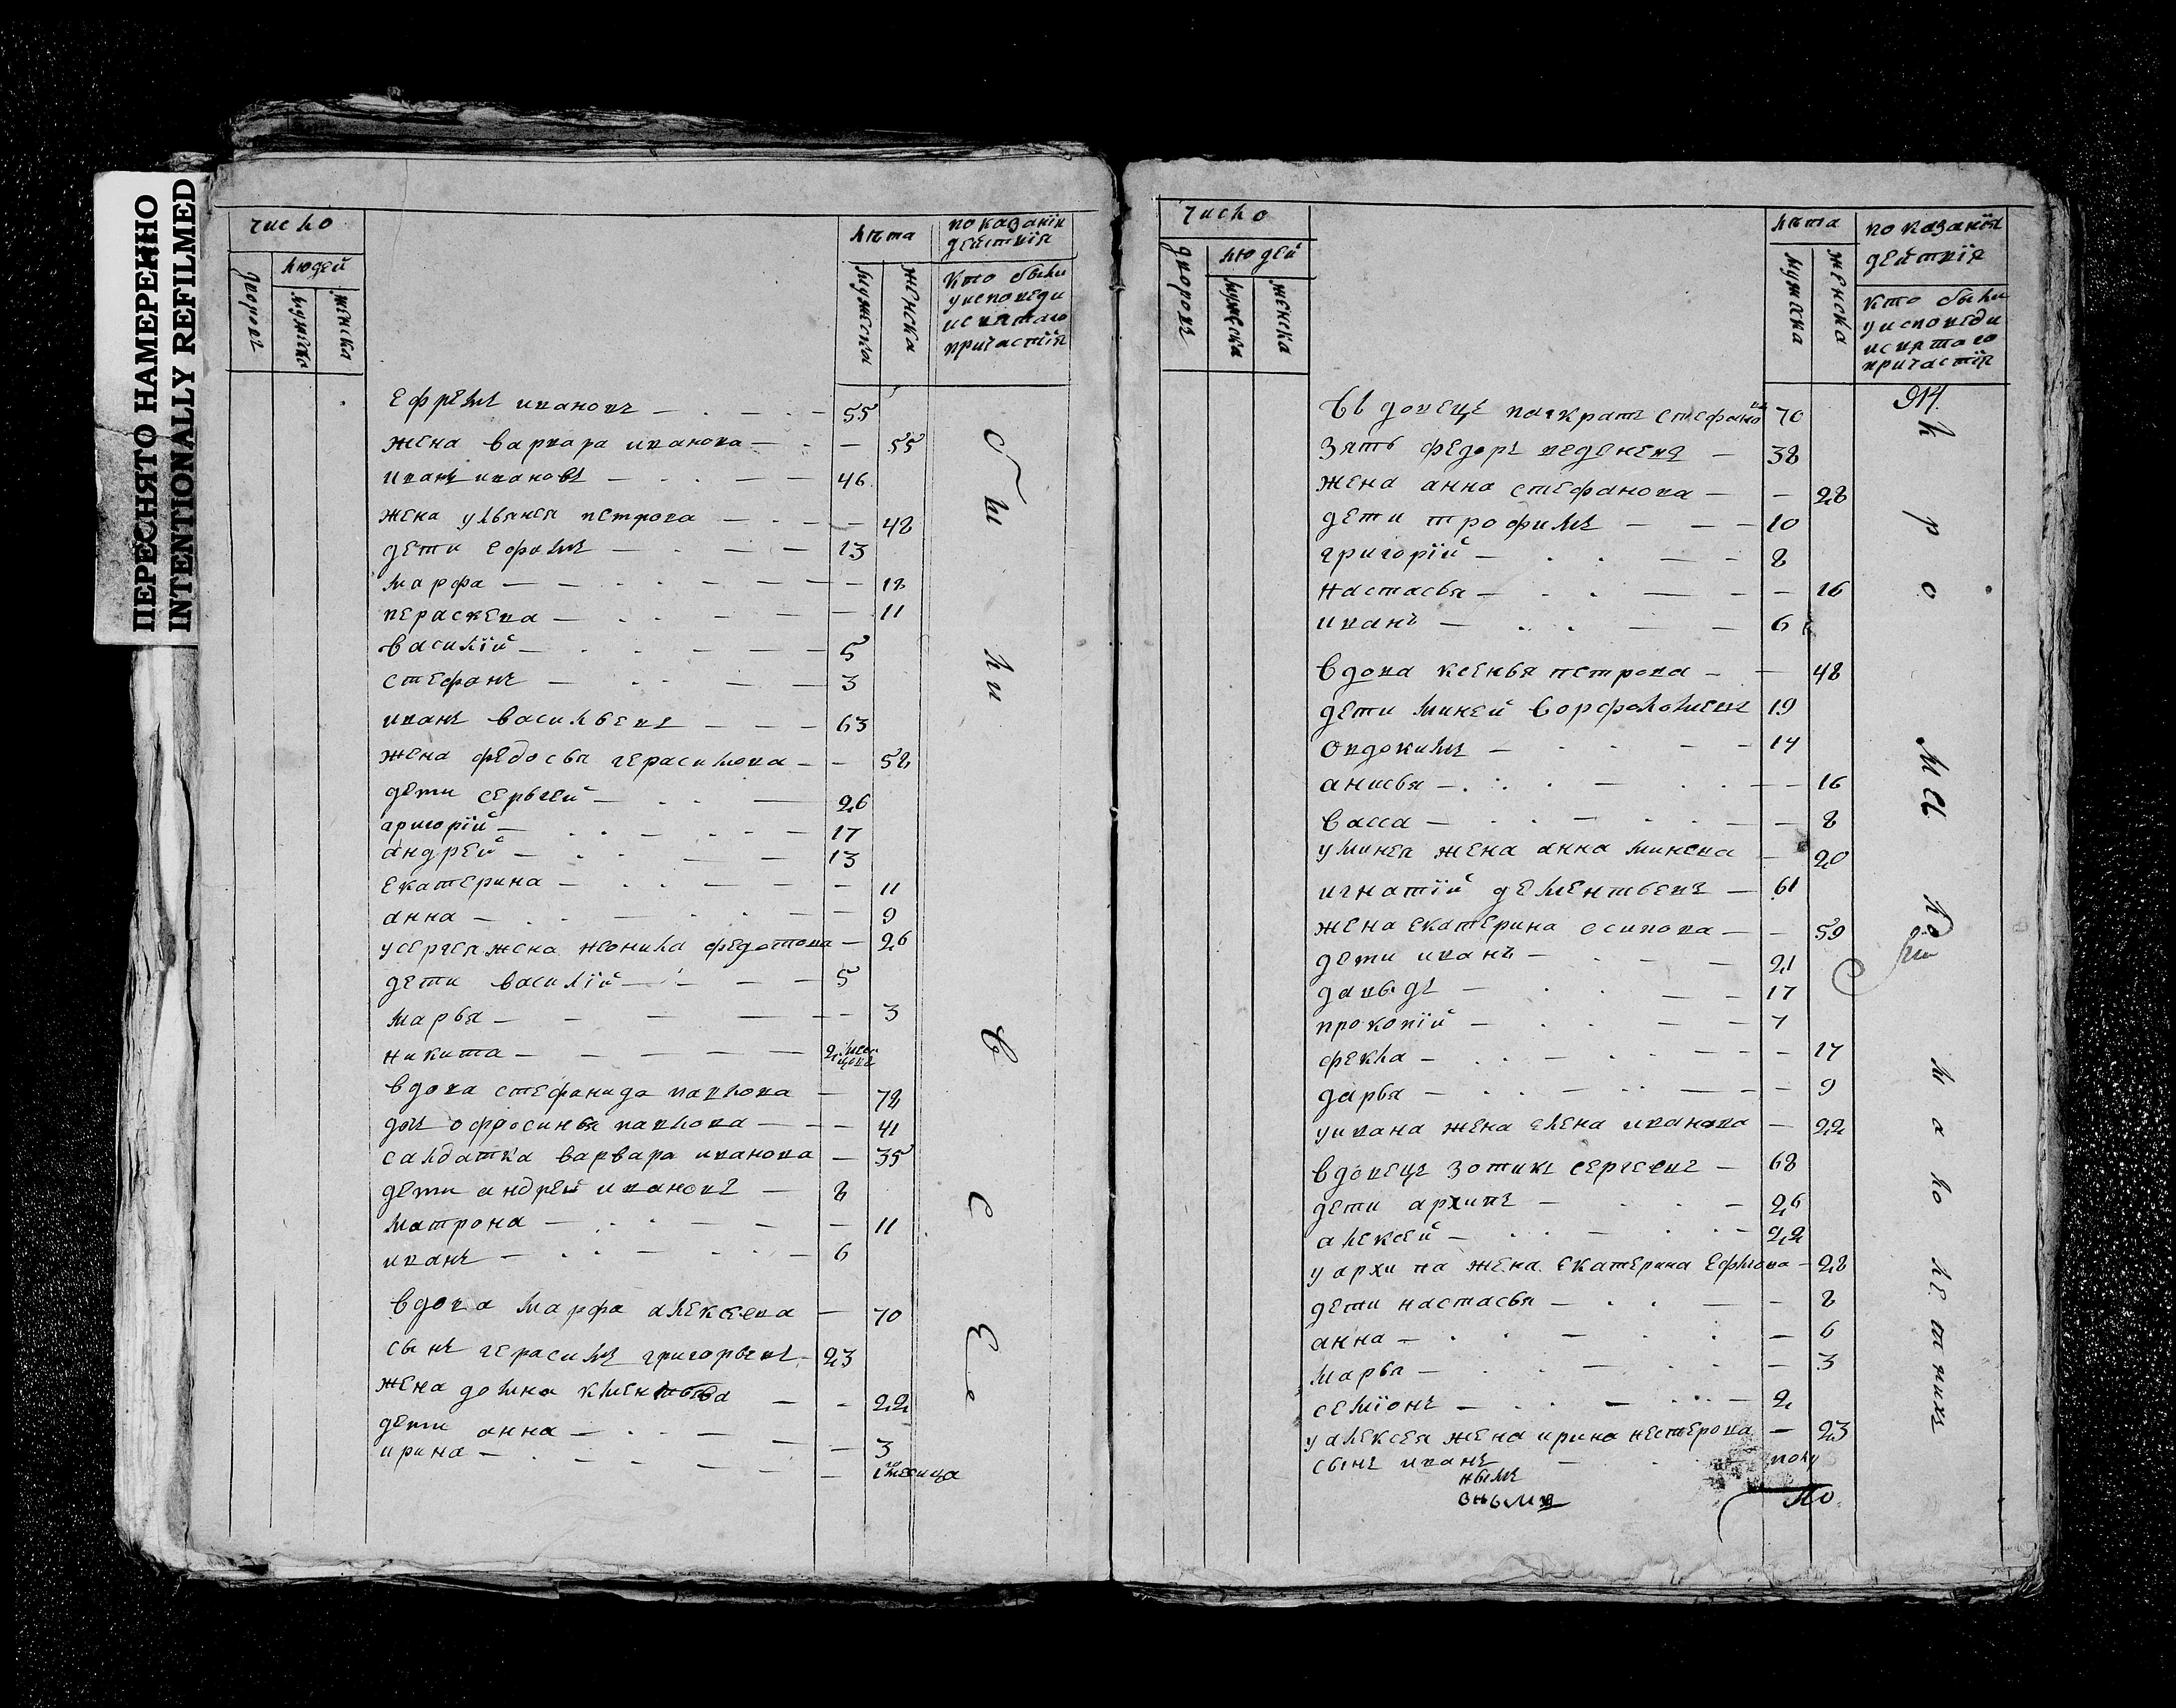 ПЕРЕСНЯТО НАМЕРЕННО
INTENTIONALLY REFILMED
число
людей
дворовъ
мужеска
женска
лѣта
мужеска
женска
показанїи
действїя
кто были
у исповеди
и святаго
причастїя
ефремъ ивановъ — 55
жена варвара иванова — 55
иванъ ивановъ — 46
жена ульянея петрова — 48
дети ефимъ — 13
марфа — 18
пераскева — 11
василїй — 5
стефанъ — 3
иванъ васильевъ — 63
жена федосья герасимова — 58
дети сергьей — 26
григорїй — 17
андрей — 13
екатерина — 11
анна — 9
у сергея жена неонила федотова — 26
дети василїй — 5
марья — 3
никита — 2 месецовъ
вдова стефанида павлова — 78
дчь офросинья павлова — 41
салдатка варвара иванова — 35
дети андрей ивановъ — 8
матрона — 11
иванъ — 6
вдова марфа алексеева — 70
сынъ герасимъ григорьевъ — 23
жена домна клементьева — 22
дети анна — 3
ирина — 1 месица
б ы л и в с е
число
людей
дворовъ
мужеска
женска
лѣта
мужеска
женска
показанїя
действїя
кто были
у исповеди
и святаго
причастїя
вдовецъ панкратъ стефановъ 70
зять федоръ веденеевъ — 38
жена анна стефанова — 28
дети трофимъ — 10
григорїй — 8
настасья — 16
иванъ — 6
вдова ксенья петрова — 48
дети миней ворфоломеевъ 19
овдокимъ — 14
анисья — 16
васса — 8
у минея жена анна минеева — 20
игнатїй дементьевъ — 61
жена екатерина осипова — 59
дети иванъ — 21
давыдъ — 17
прокопїй — 7
фекла — 17
дарья — 9
у ивана жена елена иванова — 22
вдовецъ зотикъ сергеевъ — 68
дети архипъ — 26
алексей — 22
у архипа жена екатерина ефимова — 28
дети настасья — 8
анна — 6
марья — 3
семїонъ — 2
у алексея жена ирина нестерова — 23
сынъ иванъ — полу
к р о м е малолетнихъ